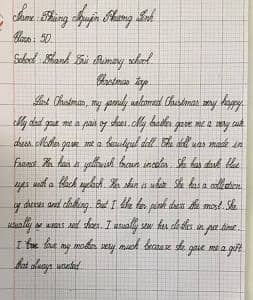 Name: Phùng Nguyễn Phương Linh
Class: 5D
School: Thanh Trù Primary school
Christmas toys
Last Christmas, my family welcomed Christmas very happy.
My dad gave me a pair of shoes. My brother gave me a very cute
dress. Mother gave me a beautiful doll. The doll was made in
France. Her hair is yellowish brown in color. She has dark blue
eyes with a black eyelash. Her skin is white. She has a collection
of dresses and clothing. But I like her pink dress the most. She
usually wears red shoes. I usually sew her clothes in free time.
I love my mother very much because she gave me a gift
that always wanted.